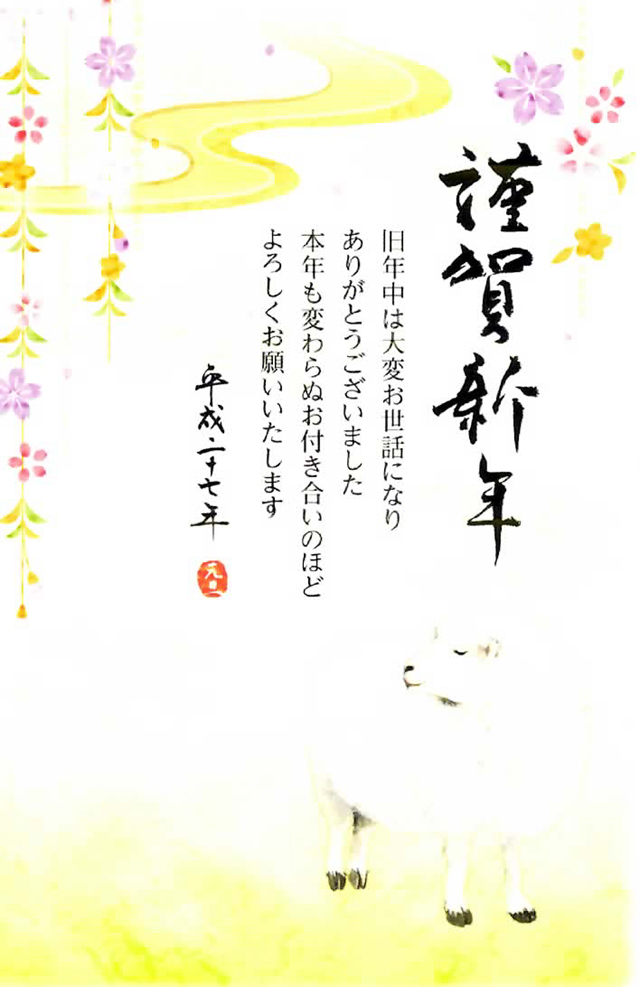 謹賀新年
旧年中は大変お世話になり
ありがとうございました
本年も変わらぬお付き合いのほど
よろしくお願いいたします
平成二十七年
元旦